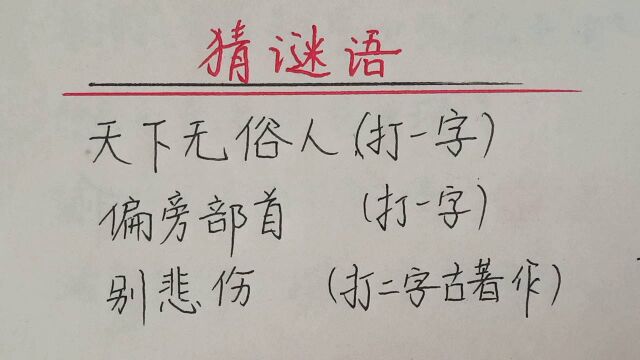 猜谜语
天下无俗人(打一字)
偏旁部首 (打一字)
别悲伤 (打二字古著作)